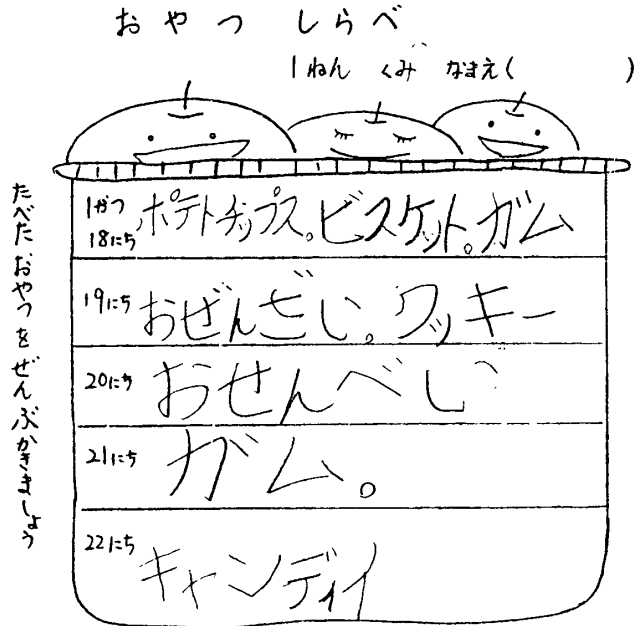 おやつ しらべ
1ねん くみ なまえ( )
たべたおやつをぜんぶかきましょう
1がつ
18にち ポテトチップス。ビスケット。ガム
19にち おぜんざい。クッキー
20にち おせんべい
21にち ガム。
22にち キャンディイ